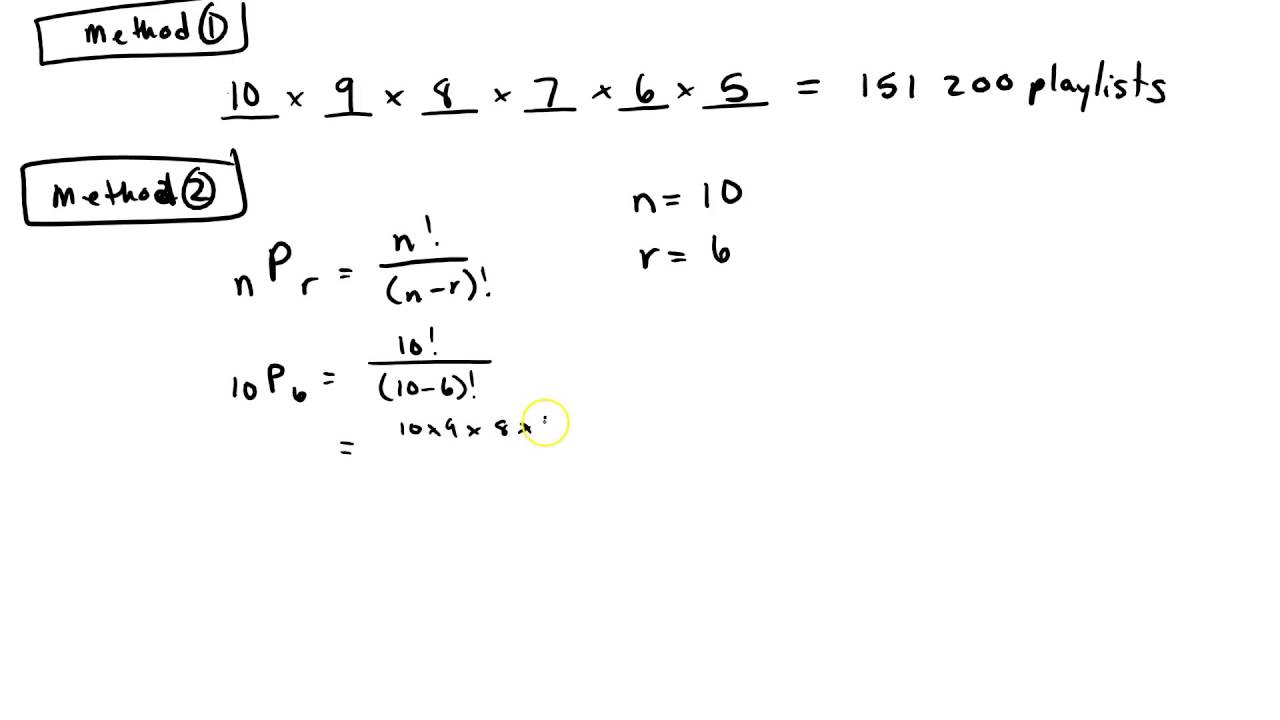 method ①
10 × 9 × 8 × 7 × 6 × 5 = 151 200 playlists
method ②
n = 10
r = 6
nPr = n! / (n-r)!
10P6 = 10! / (10-6)!
= 10×9×8×